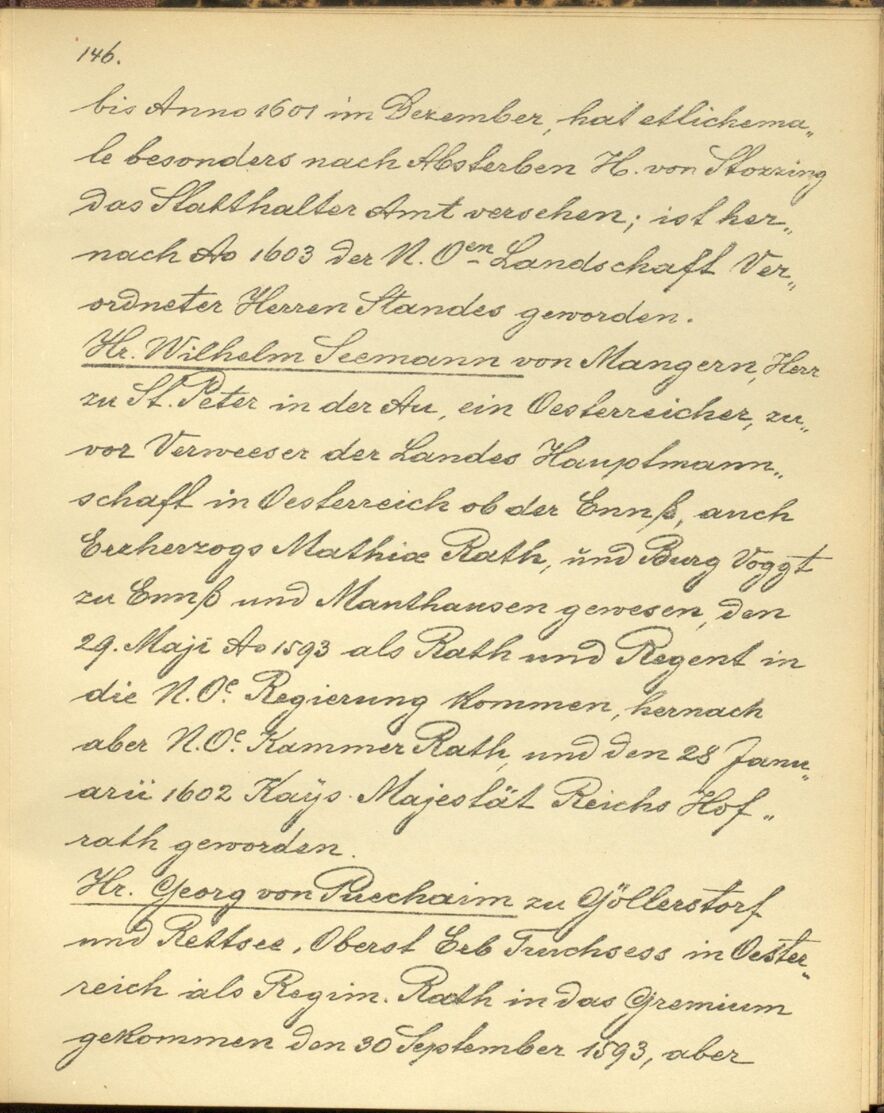 146.
bis Anno 1601 im Dezember, hat etlichema„
le besonders nach Absterben H. von Stozzing
das Statthalter Amt versehen; ist her„
nach Ao 1603 der N. Oen Landschaft Ver„
ordneter Herren Standes geworden.
Hr. Wilhelm Seemann von Mangern, Herr
zu St. Peter in der Au, ein Oesterreicher, zu„
vor Verweeser der Landes Hauptmann„
schaft in Oesterreich ob der Ennß, auch
Erzherzogs Mathiæ Rath, und Burg Voggt
zu Ennß und Manthausen gewesen, den
29. Maji Ao 1593 als Rath und Regent in
die N. Oe. Regierung kommen, hernach
aber N. Oe. Kammer Rath, und den 28 Janu„
arii 1602 Kaÿs. Majestät Reichs Hof„
rath geworden.
Hr. Georg von Puechaim zu Göllerstorf
und Rettsee, Oberst Erb Truchsess in Oester„
reich als Regim. Rath in das Gremium
gekommen den 30 September 1593, aber